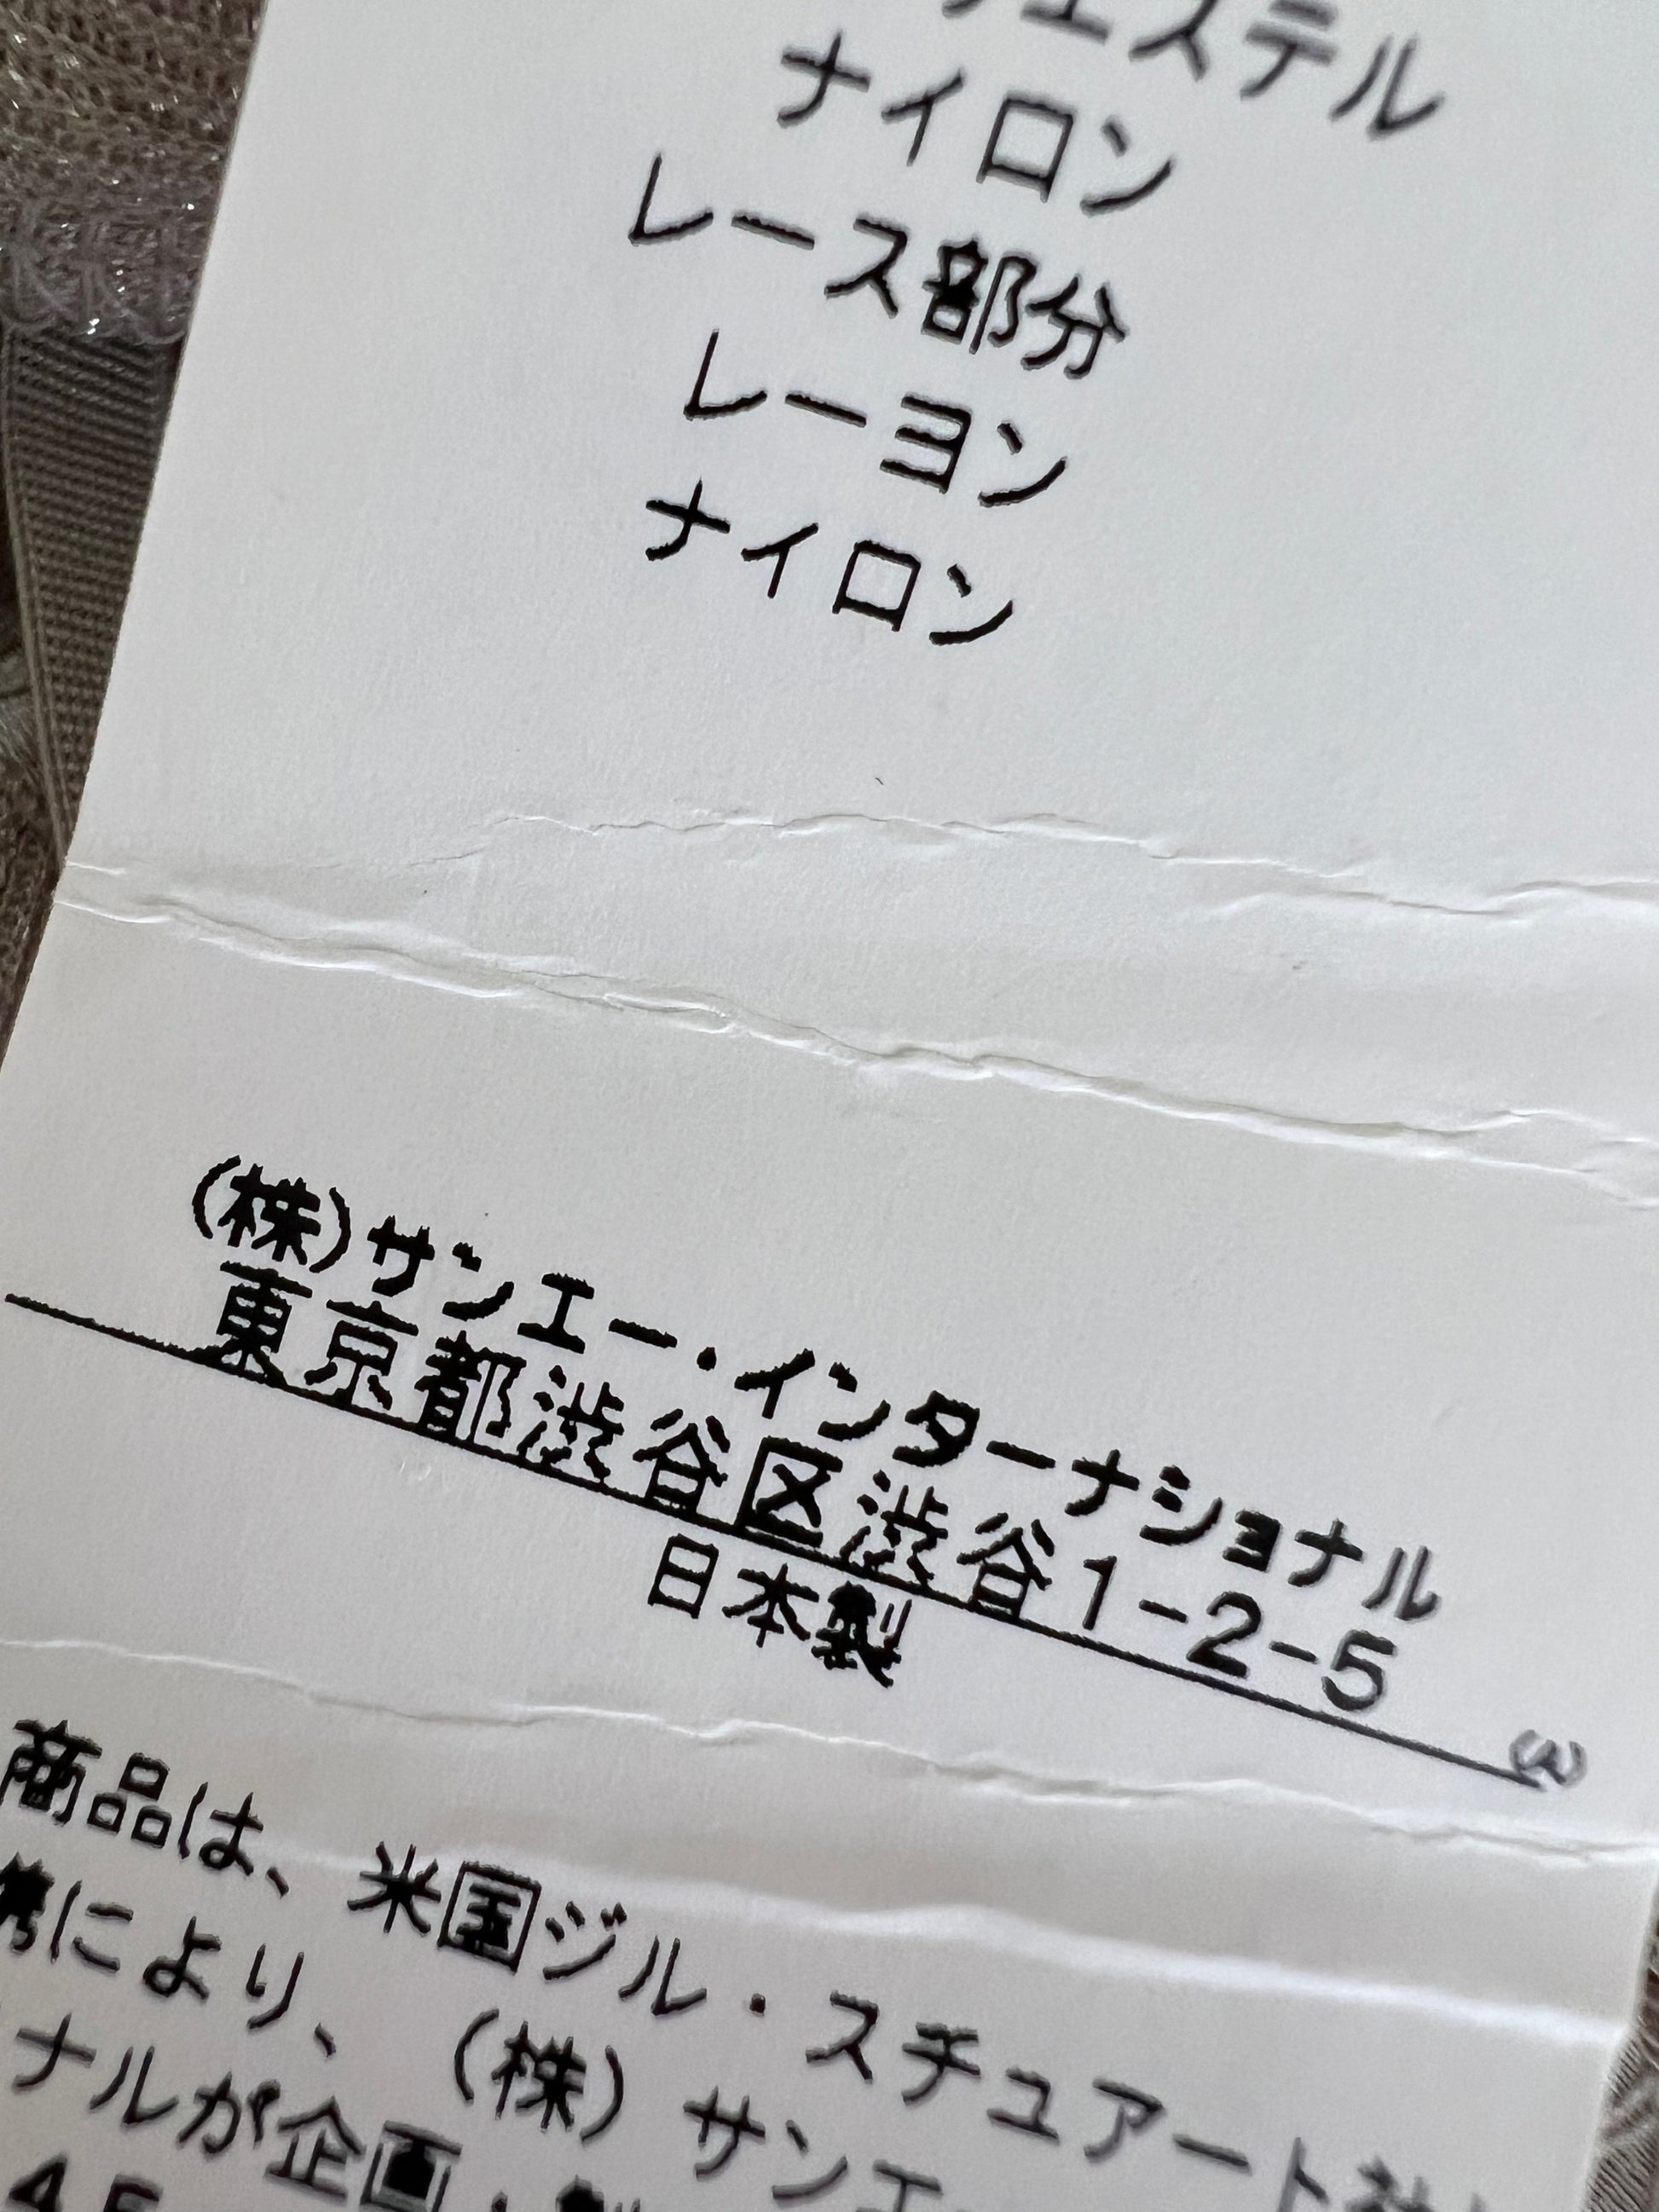 エステル
ナイロン
レース部分
レーヨン
ナイロン
(株)サンエー・インターナショナル
東京都渋谷区渋谷1-2-5
日本製
商品は、米国ジル・スチュアート社
携により、(株)サンエ
ナルが企画・製